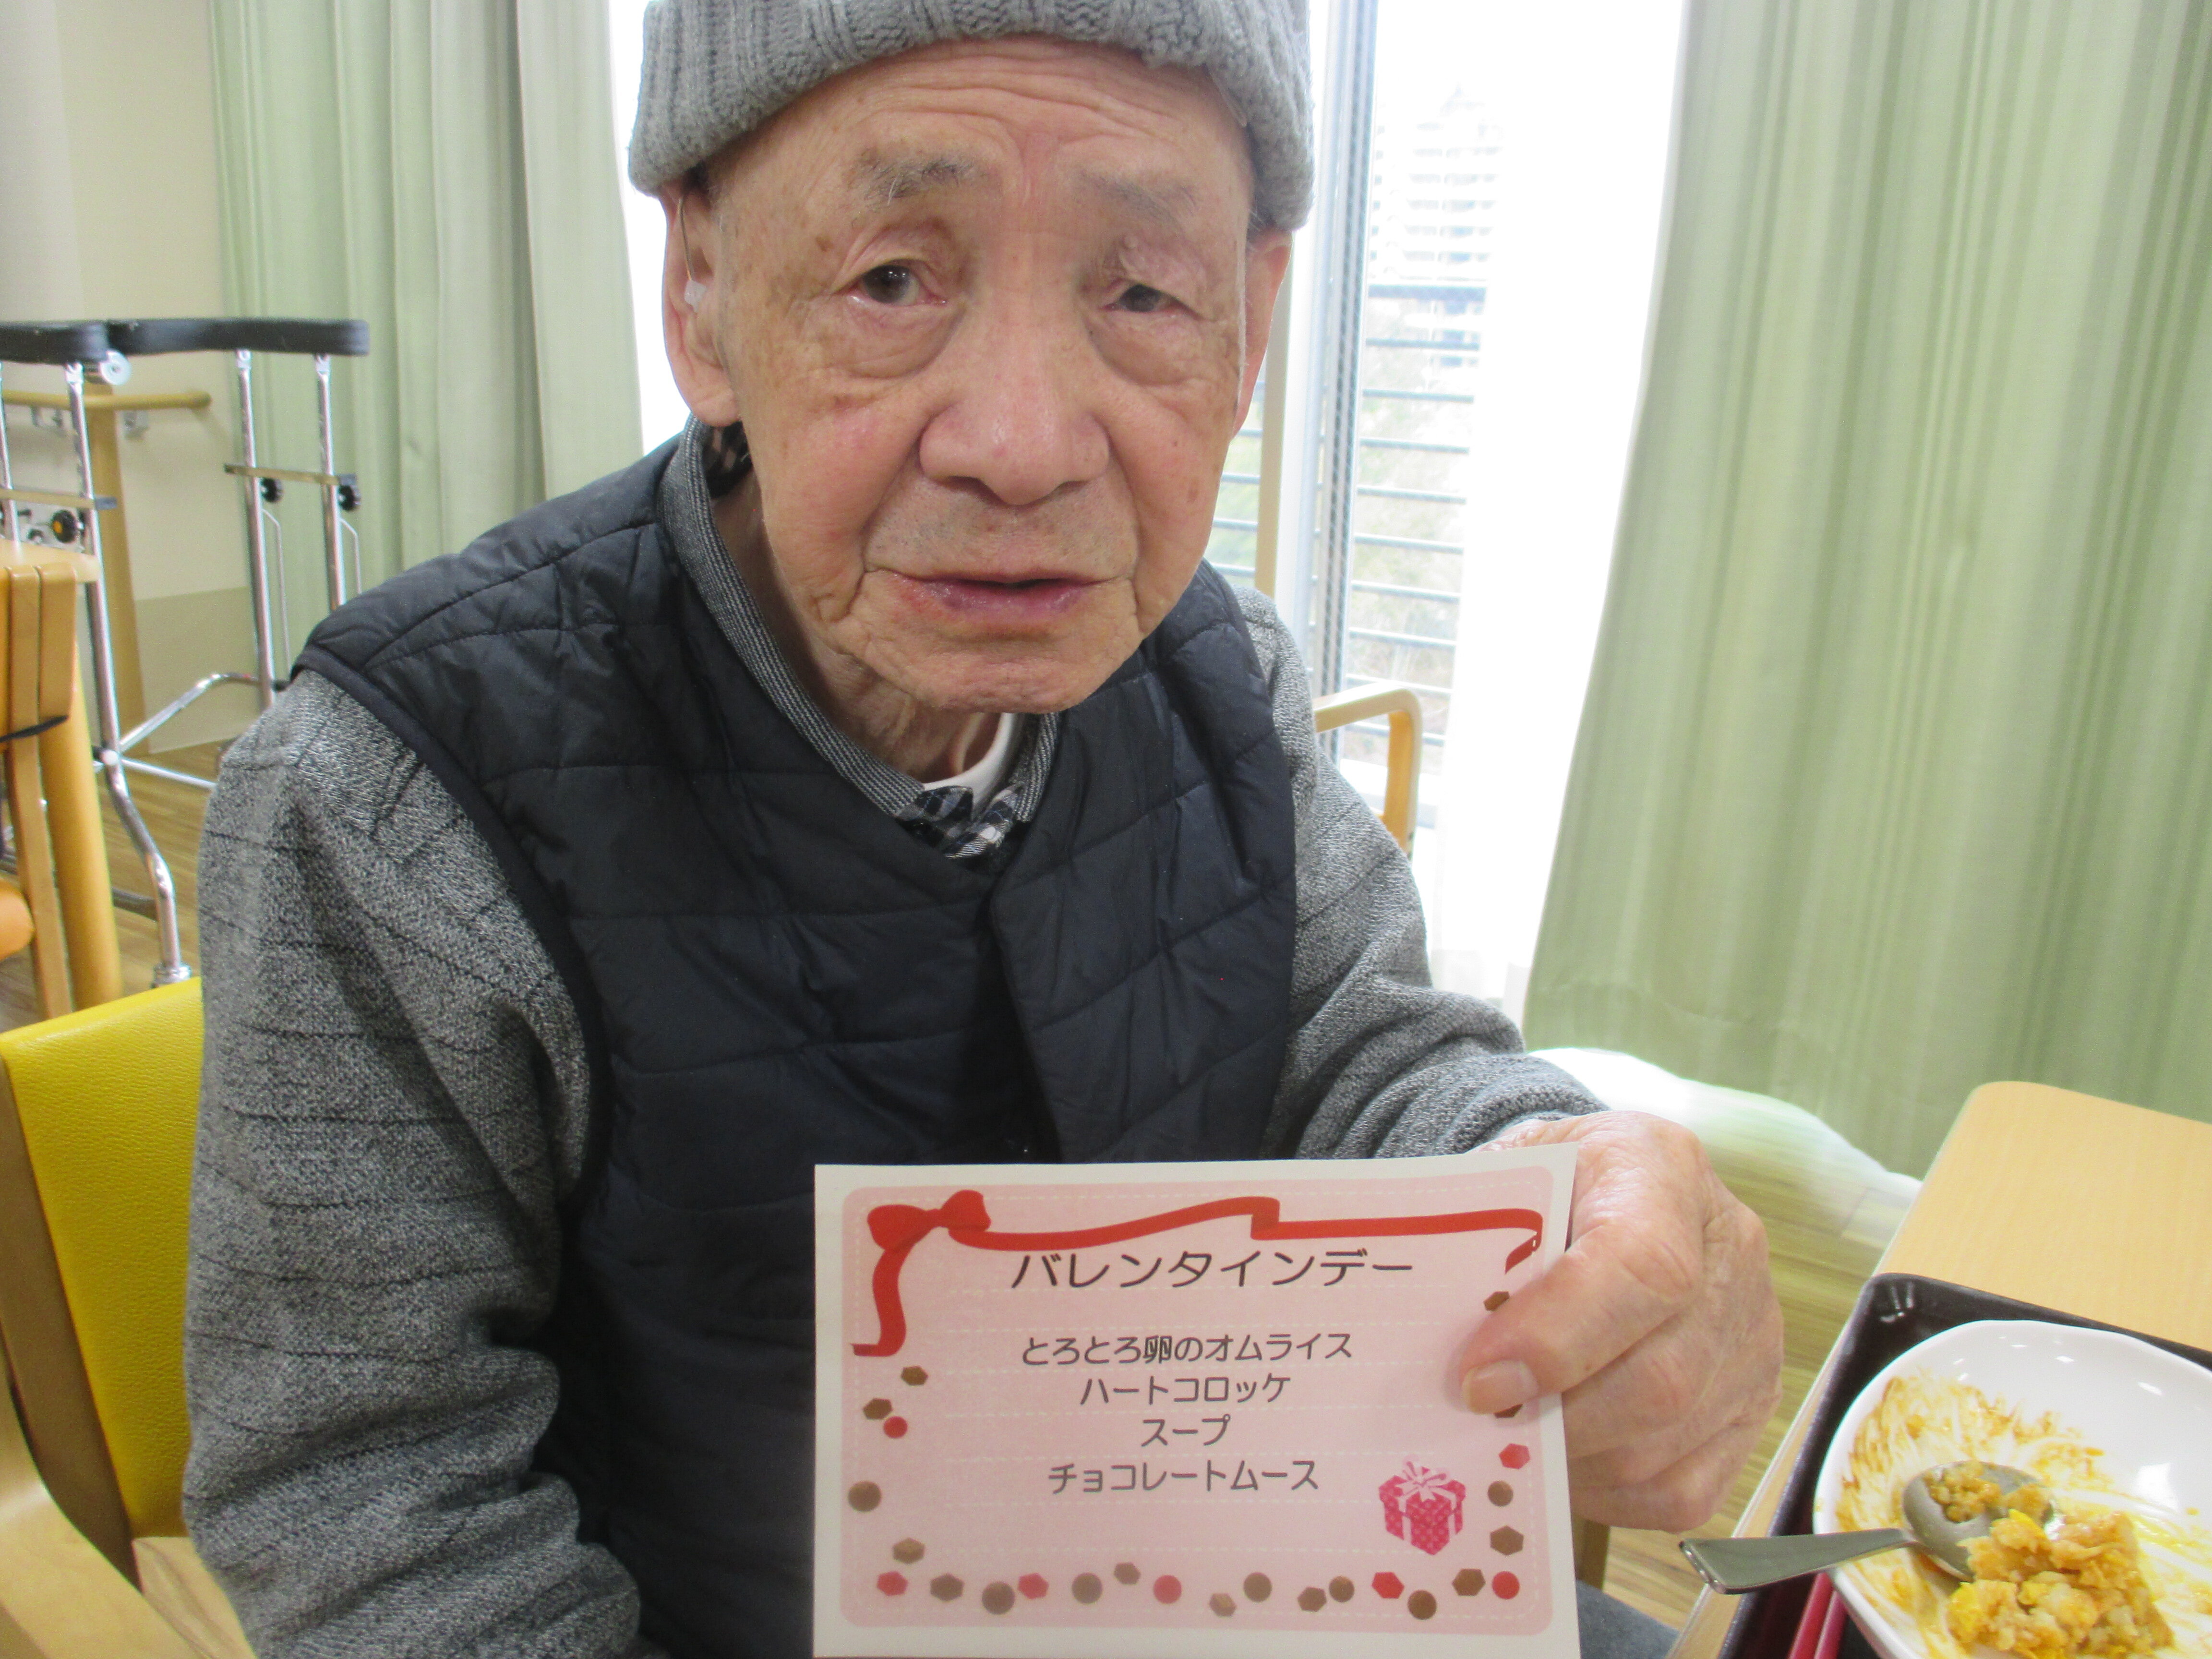 バレンタインデー
とろとろ卵のオムライス
ハートコロッケ
スープ
チョコレートムース